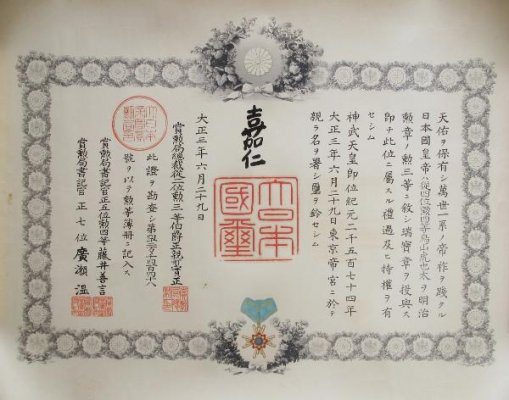 天佑ヲ保有シ萬世一系ノ帝祚ヲ踐タル
日本國皇帝ハ從四位勲四等虎也太ヲ明治
勲章ノ勲三等ニ敍シ瑞寶章ヲ授與ス
即チ此位ニ屬スル禮遇及ヒ特權ヲ有
セシム
神武天皇即位紀元二千五百七十四年
大正三年六月二十九日東京帝宮ニ於テ
親ラ名ヲ署シ璽ヲ鈐セシム
嘉仁
大日本
國璽
大正三年六月二十九日
賞勲局總裁從二位勲三等伯爵正親町實正
此證ヲ勘査シ第
號ヲ以テ勲等簿冊ニ記入ス
賞勲局書記官正五位勲四等藤井善言
賞勲局書記官正七位廣瀬溫